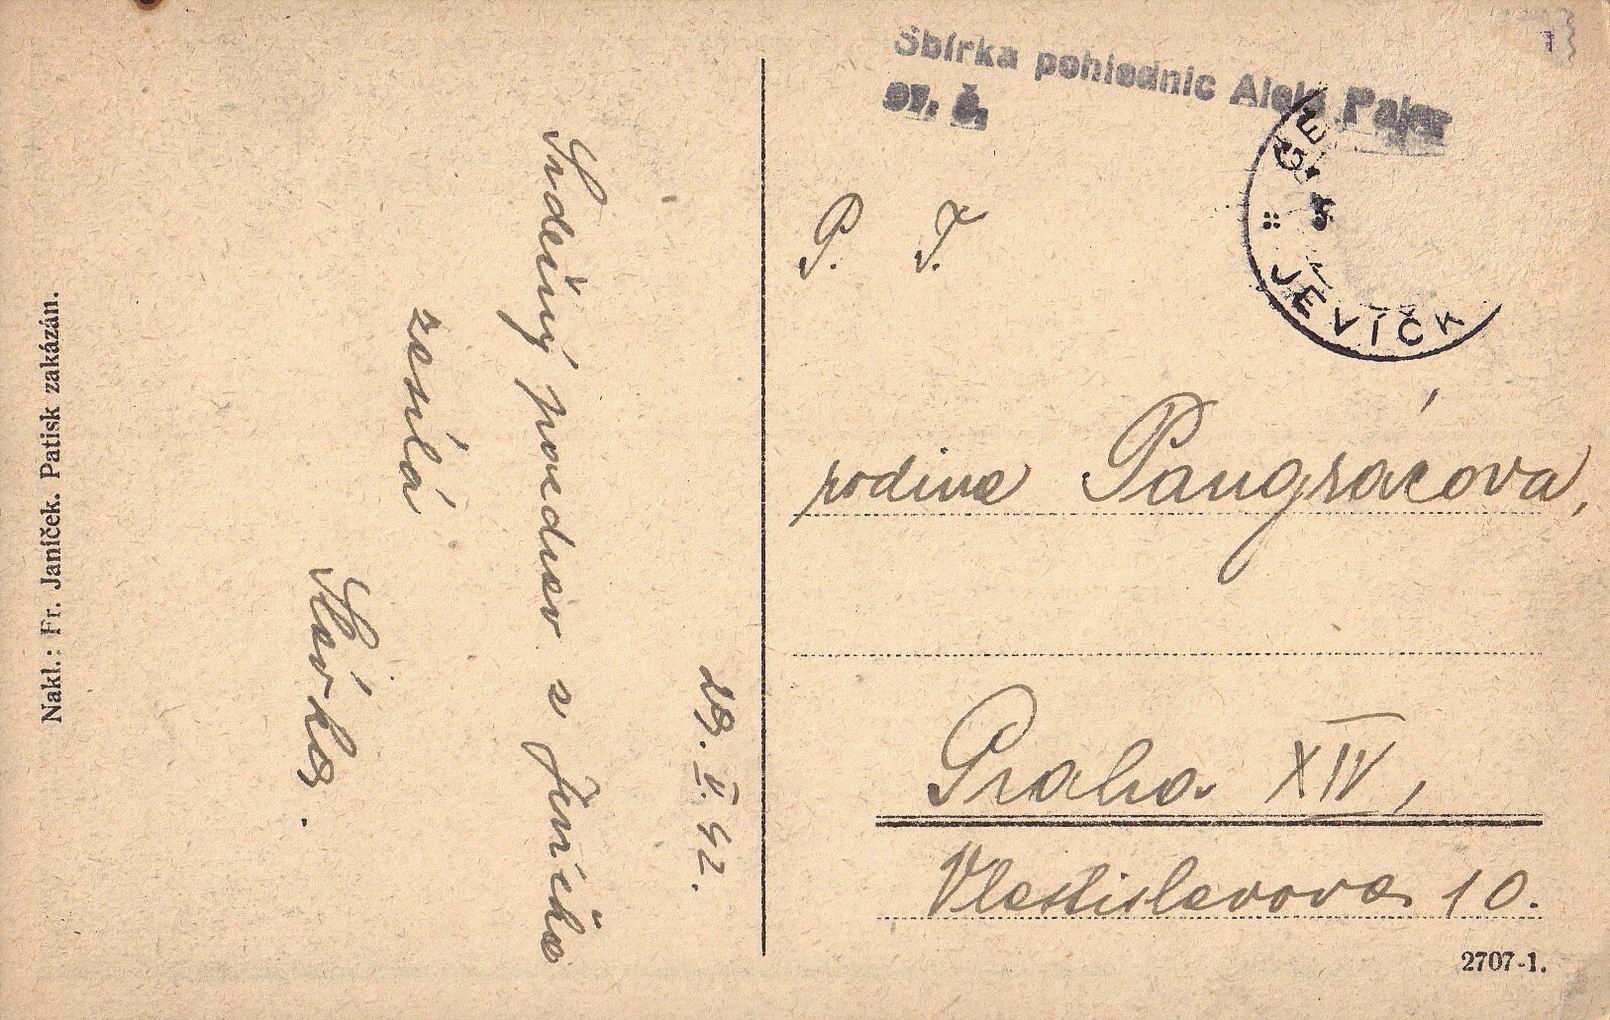 Nakl.: Fr. Janíček. Patisk zakázán.
29. V. 42.
Srdečný pozdrav z Jevíčka
zasílá
Slávka.
Sbírka pohlednic
ev. č.
GE
JEVÍČK
P. T.
rodina Pangrácova,
Praha XIV,
Vlastislavova 10.
2707-1.